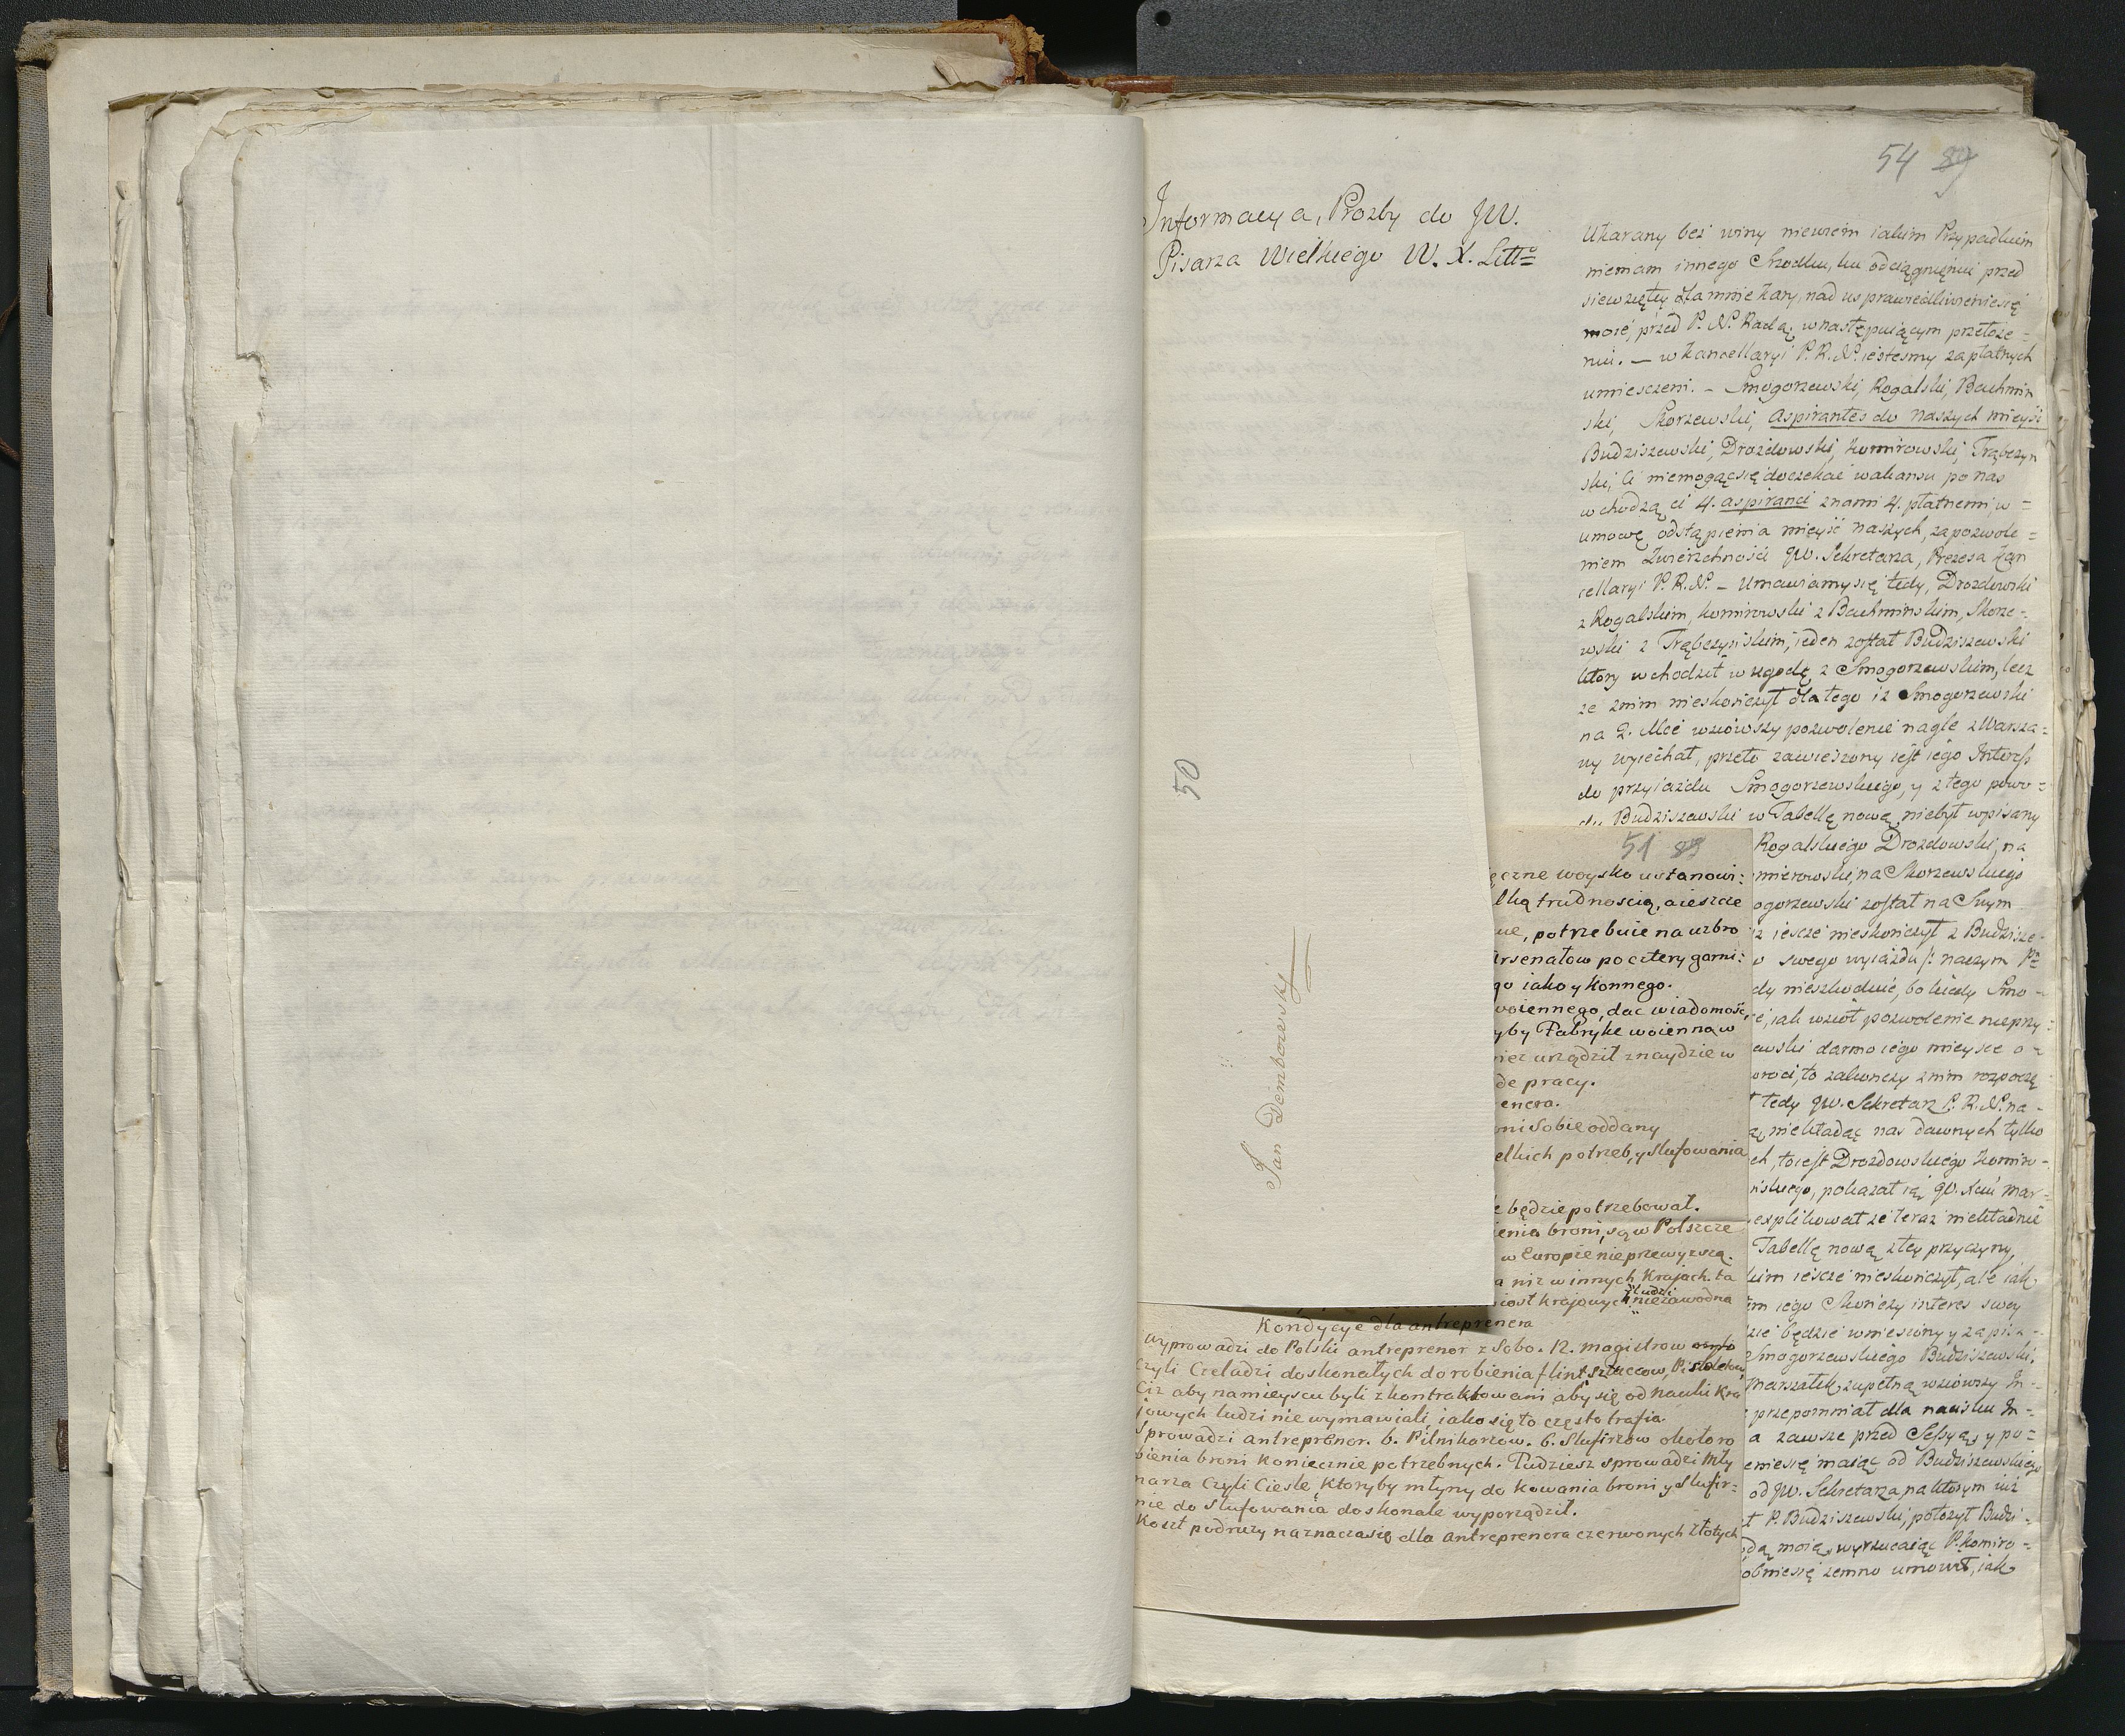 54 89
Informacya, Prozby do JW.
Pisarza Wielkiego W. X. Litt=
Ukarany bez winy niewiem iakim Przypadkiem
niemam innego Srzodku, ku odciągnięniu przed
siewziętey dla mnie kary, nad usprawiedliwieniesię
moie, przed P. N. Radą wnastępuiącym przełoże=
niu. — w Kancellaryi P. R. N. iestesmy zapłatnych
umiesczeni. – Smogorzewski, Rogalski, Bachmin
ski, Skorzewski, Aspirantes do naszych mieysc
Budziszewski, Drozdowski, Komirowski, Trąbczyn
ski, Ci niemogącsię doczekać wakansu po nas
wchodzą ci 4. aspiranci znami 4. płatnemi, w=
umowę odstąpienia mieysc naszych, zapozwole=
niem Zwierzchności JW. Sekretarza, Prezesa Kan
cellaryi P. R. N. – Umawiamy się tedy, Drozdowski
z Rogalskim, Komirowski z Bachminskim, Skorze=
wski z Trąbczynskim, ieden został Budziszewski
ktory wchodził w ugodę z Smogorzewskim, lecz
ze znim nieskończył dla tego iz Smogorzewski
na 2. Mce wziowszy pozwolenie nagle z Warsza=
wy wyiechał, przeto zawieszony iest iego Interess
do przyiazdu Smogorzewskiego, y z tego powo=
du Budziszewski w Tabellę nową niebył wpisany
Rogalskiego Drozdowski, na
mierowski, na Skorzewskiego
ogorzewski został na Swym
iz iescze nieskończył z Budzisze=
o swego wyiazdu /: naczym
dy nieszkoduie, bo kiedy Smo=
, iak wziął pozwolenie nieprzy=
ewski darmo iego mieysce o=
wroci, to zakonczy znim rozpoczę
tedy JW. Sekretarz P. R. N. na=
ą niekładąc nas dawnych tylko
ch, toiest Drozdowskiego Komiro=
nskiego, pokazał ią JW. Xciu Mar=
explikował ze teraz niekładnie
Tabellę nową z tey przyczyny,
kim iescze nieskończył, ale iak
im iego skończy interes swoy
zie będzie wniesiony y zapisa=
Smogorzewskiego Budziszewski.
Marszałek zupełną wziowszy In=
przepomniał dla nacisku In=
a zawsze przed Sessyą, y po=
eniesię maiąc od Budziszewskiego
od JW. Sekretarza, na ktorym iuż
ał P. Budziszewski, położył Budzi=
odą moią, wyrzucaiąc P. Komiro=
obniesię zemno umowił, iak
50
Jan Dembowski
51 89
ęczne woysko ustanowi:
lką trudnoscią, a ieszcze
ne, potrzebuie na uzbro
Arsenałow po cztery garni:
go iako y Konnego.
woiennego, dac wiadomość,
yby Fabrykę woienną w
niez urządził znaydzie w
de pracy.
enera.
oni sobie oddany
elkich potrzeb, y slufowania
będzie potrzebował.
ienia broni, są w Polszcze
w Europie nie przewyzszą.
a niz w innych Krajach. ta
ludzi
iost krajowych niezawodna
Kondycye dla antreprenera
Wyprowadzi do Polski antreprenor z Sobo. 12. magistrow
Czyli Czeladzi doskonałych do robienia flint sztuccow, Pistoletow,
Ciz aby namieyscu byli zkontraktowani aby się od nauki Kra
jowych ludzi nie wymawiali, iako się to często trafia.
Sprowadzi antreprenor. 6. Pilnikarzow. 6. Slufirzow około ro
bienia broni koniecznie potrzebnych. Tudziesz sprowadzi Mły
narza Czyli Cieslę, Ktoryby młyny do kowania broni y slufir=
nie do slufowania doskonale wyporządził.
Koszt podruzy naznacza się dla antreprenora czerwonych Złotych